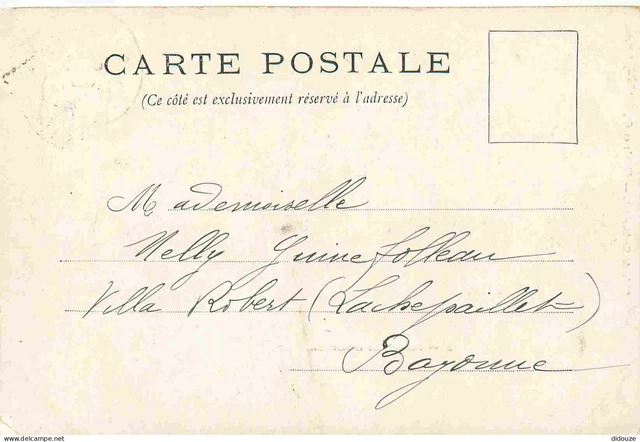 CARTE POSTALE
(Ce côté est exclusivement réservé à l'adresse)
Mademoiselle
Nelly Guinefolleau
Villa Robert (Lachepaillet)
Bayonne
didouze
www.delcampe.net